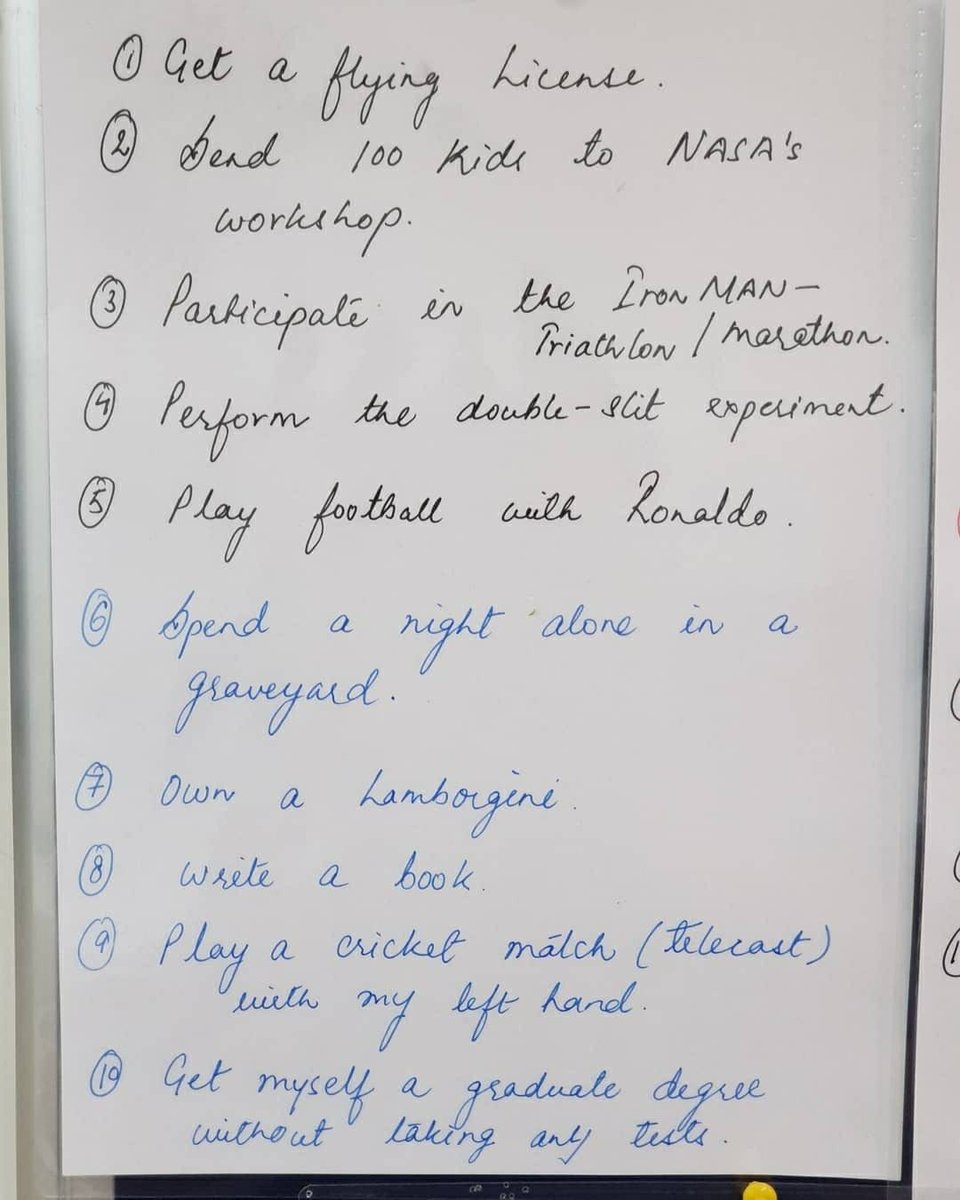 ① Get a flying License.
② Send 100 Kids to NASA's
workshop.
③ Participate in the Iron MAN-
Triathlon / marathon.
④ Perform the double-slit experiment.
⑤ Play football with Ronaldo.
⑥ Spend a night alone in a
graveyard.
⑦ Own a Lamborgini.
⑧ write a book.
⑨ Play a cricket match (telecast)
with my left hand.
⑩ Get myself a graduate degree
without taking any tests.